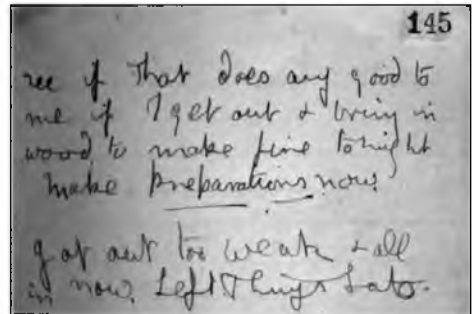 145
see if that does any good to
me if I get out & bring in
wood to make fire tonight
make preparations now.
got out too weak & all
in now. Left Things Late.